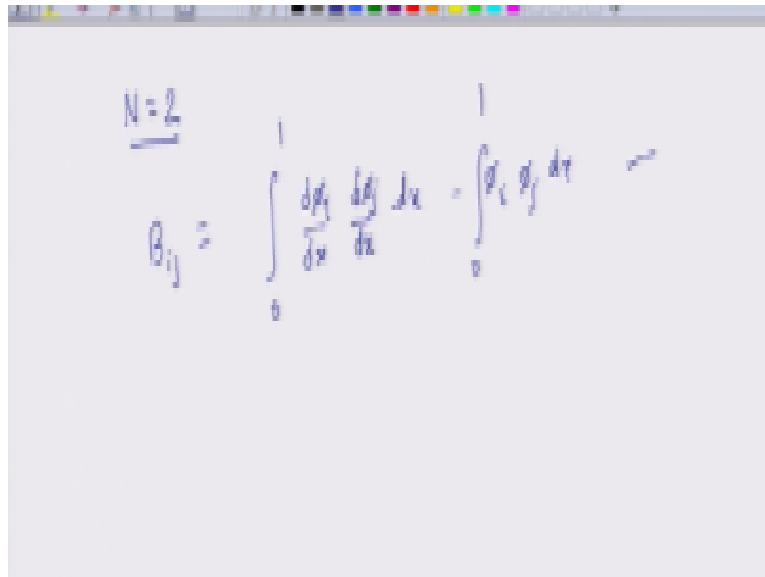 N = 2
B_{ij} = \int_0^1 \frac{dφ_i}{dx} \frac{dφ_j}{dx} dx - \int_0^1 φ_i φ_j dx -